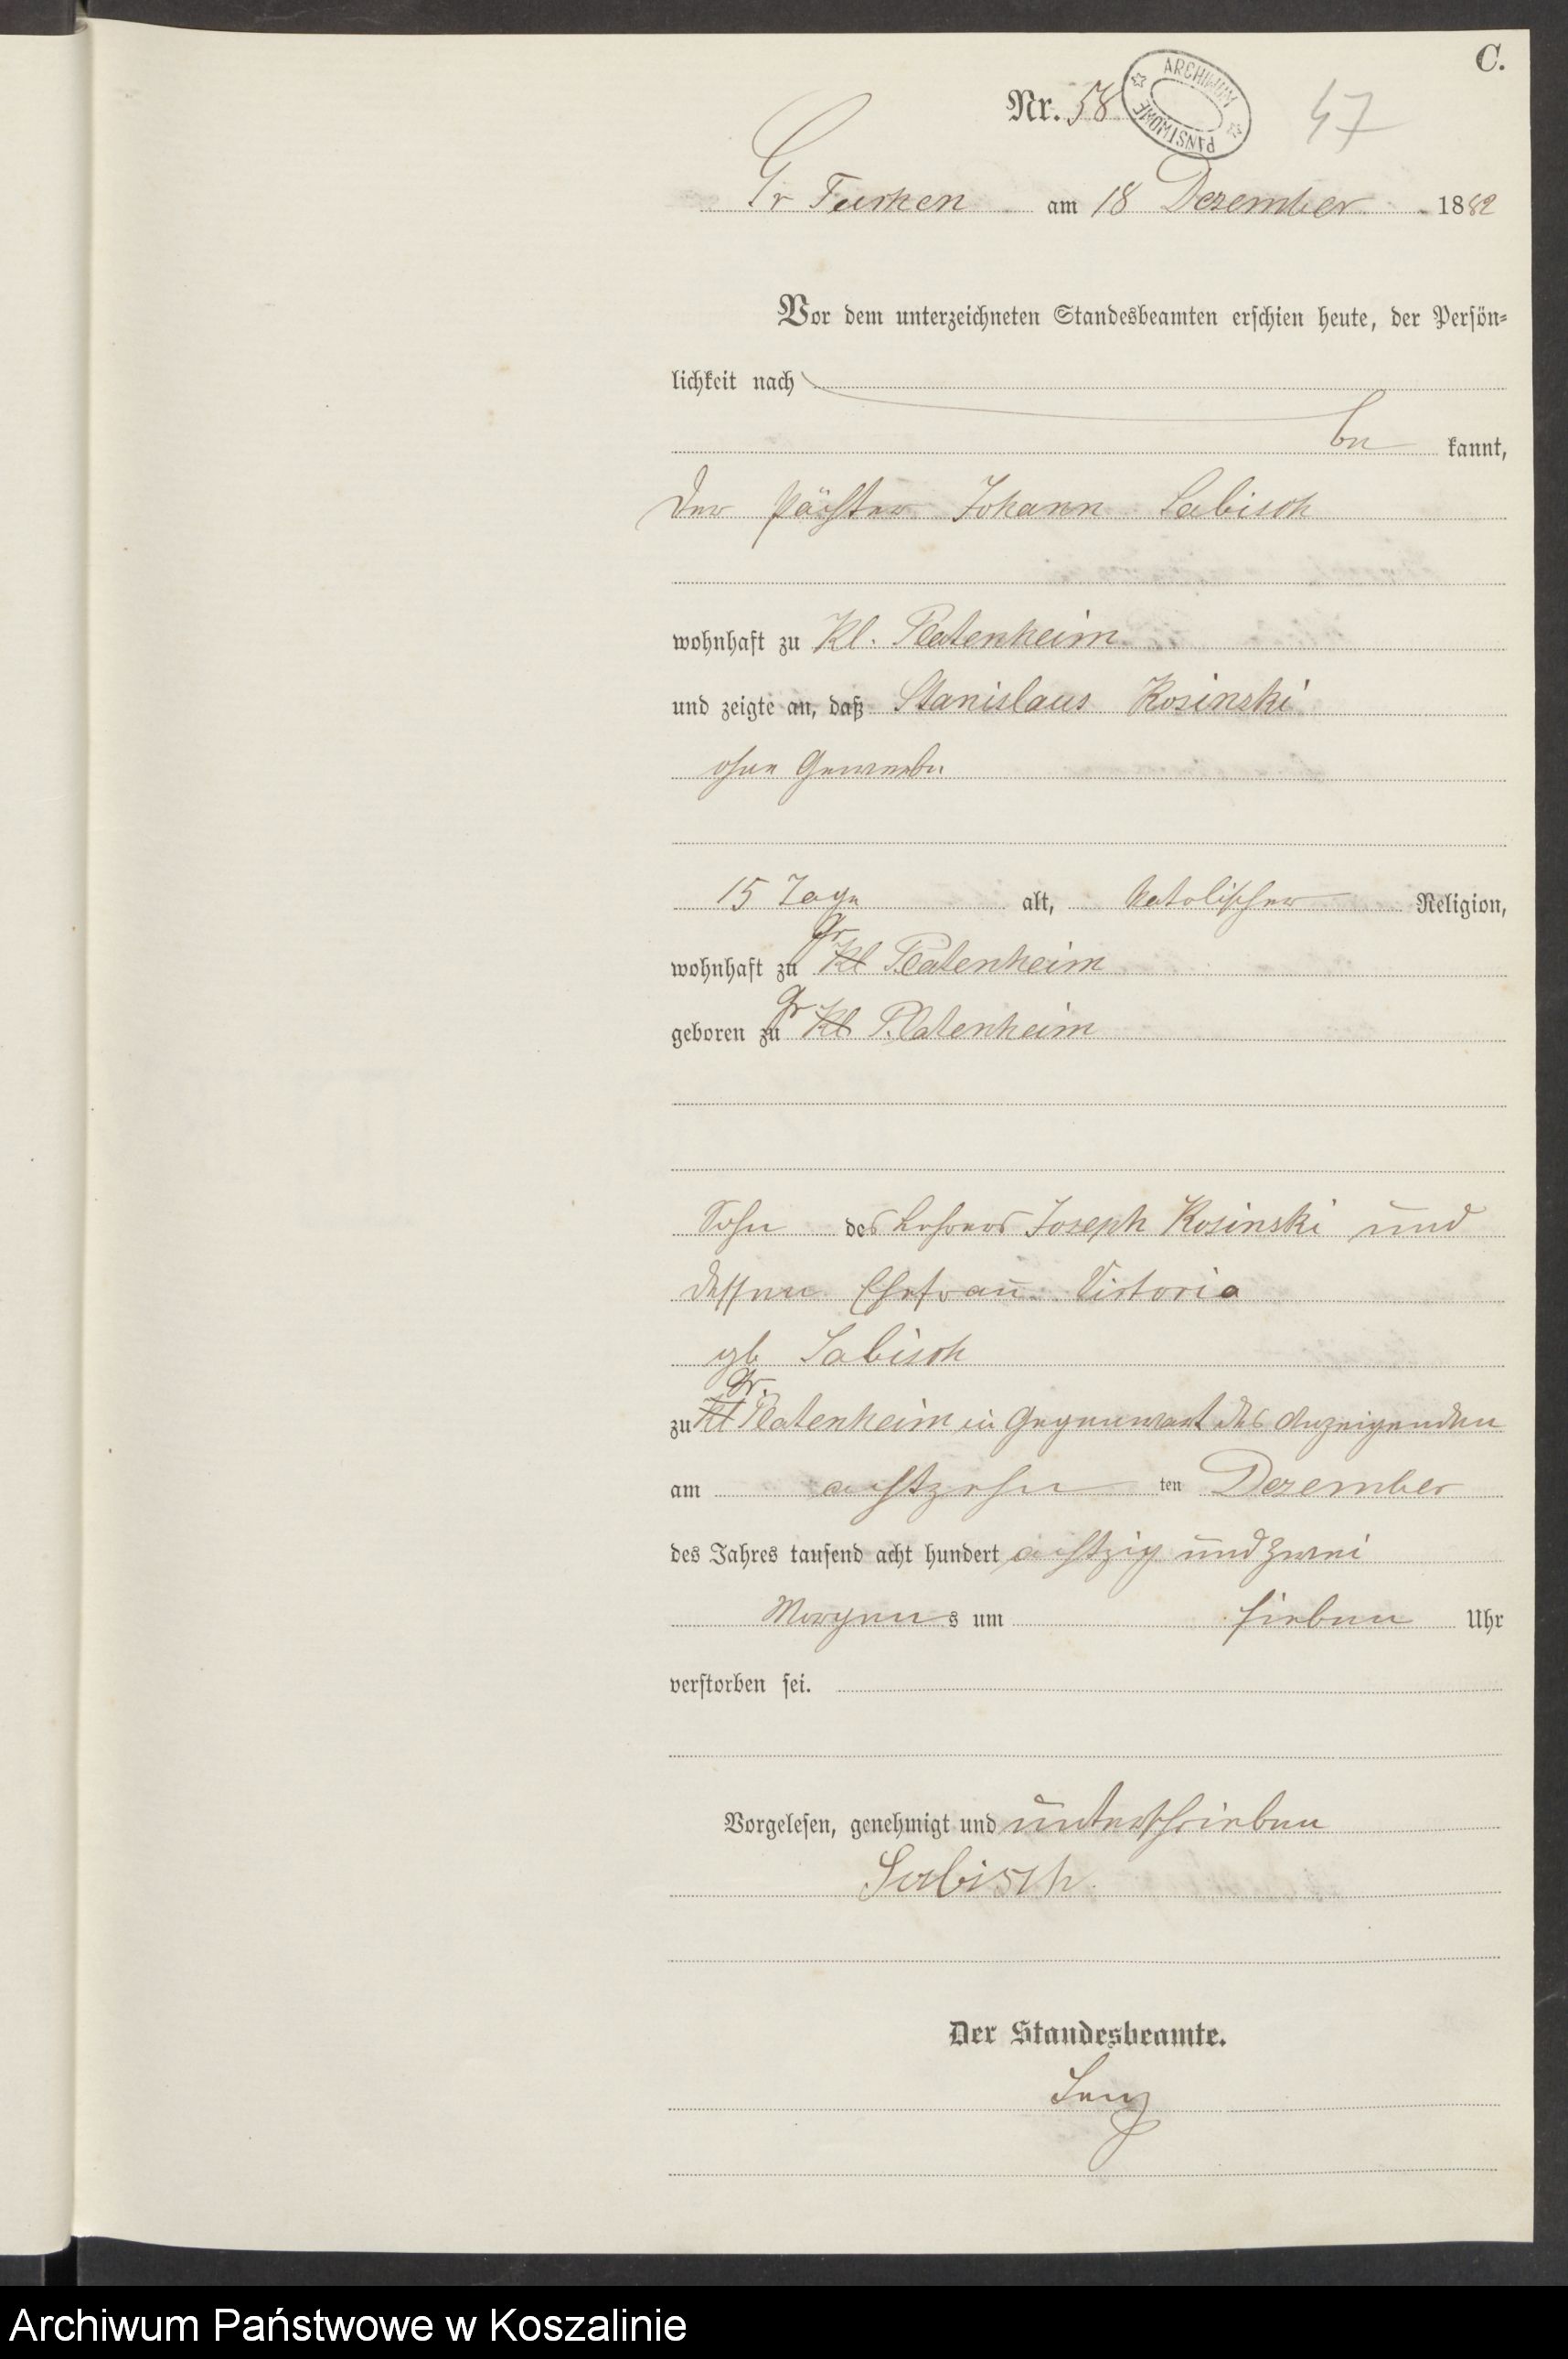 C.
Nr. 58
ARCHIWUM PAŃSTWOWE
47
Gr Tuchen am 18 Dezember 1882
Vor dem unterzeichneten Standesbeamten erschien heute, der Persön-
lichkeit nach
be kannt,
der Pächter Johann Sabisch
wohnhaft zu Kl. Platenheim
und zeigte an, daß Stanislaus Kosinski
ohne Gewerbe
15 Tage alt, katolischer Religion,
wohnhaft zu Gr Kl Platenheim
geboren zu Gr Kl Platenheim
Sohn des Lehrers Joseph Kosinski und
dessen Ehefrau Victoria
geb Sabisch
zu Kl Gr. Platenheim in Gegenwart des Anzeigenden
am achtzehn ten Dezember
des Jahres tausend acht hundert achtzig und zwei
Morgens um sieben Uhr
verstorben sei.
Vorgelesen, genehmigt und unterschrieben
Sabisch.
Der Standesbeamte.
Archiwum Państwowe w Koszalinie